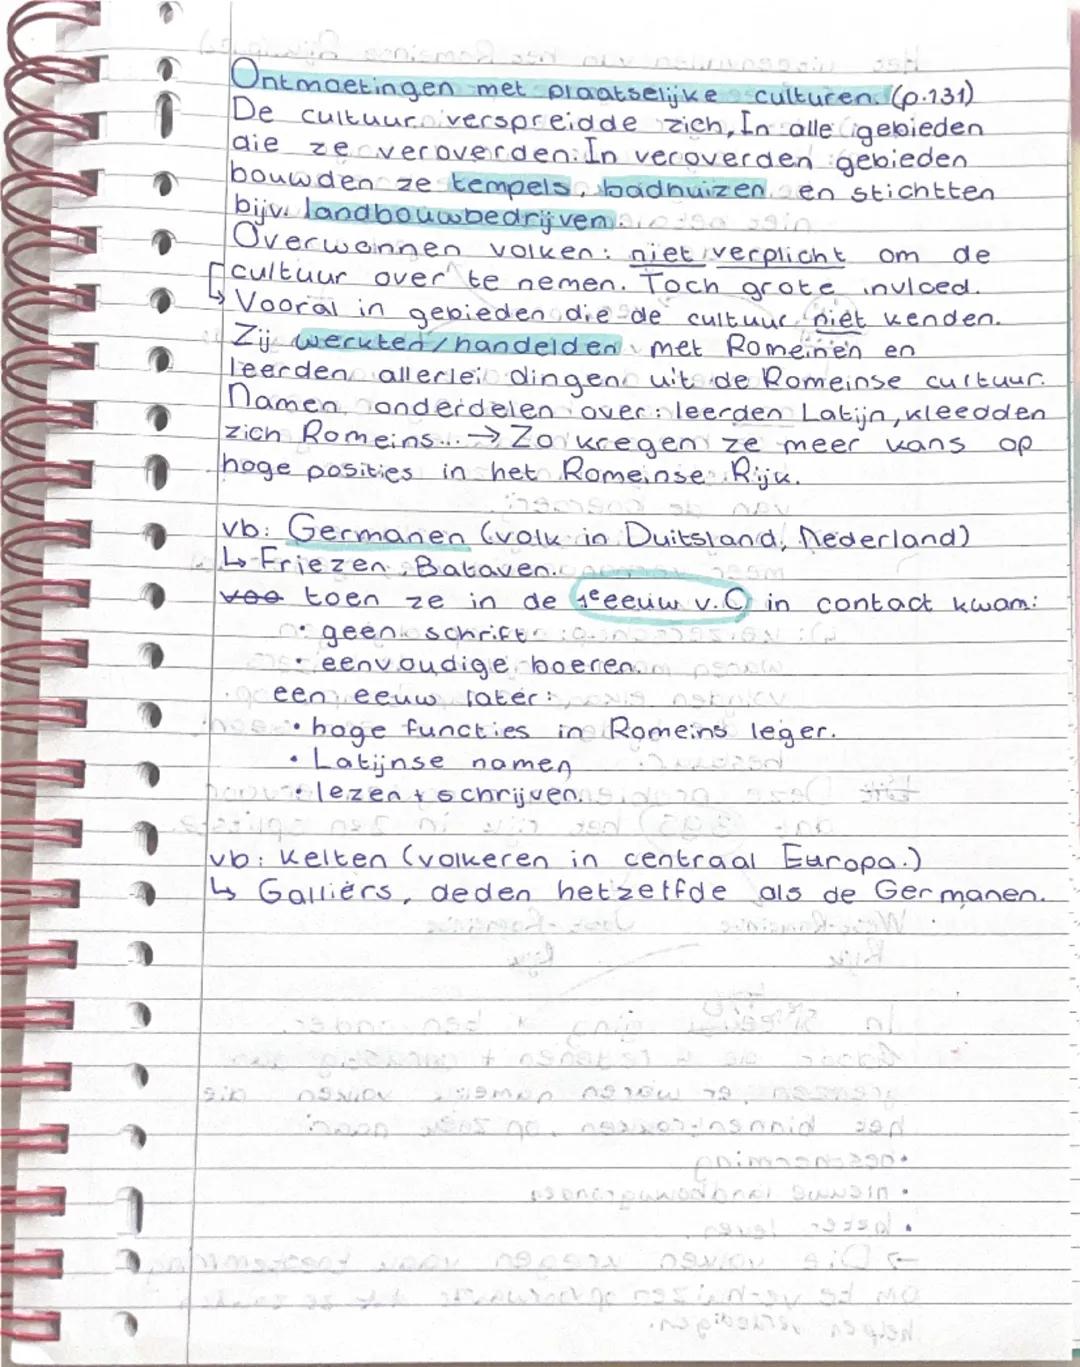 Ontmoetingen met plaatselijke culturen. (p.131)
De cultuur verspreidde zich, In alle gebieden
die ze veroverden. In veroverden gebieden
bouwden ze tempels, badhuizen en stichtten
bijv. landbouwbedrijven.
Overwonnen volken: niet verplicht om de
cultuur over te nemen. Toch grote invloed.
↳ Vooral in gebieden die de cultuur niet kenden.
Zij werkten/handelden met Romeinen en
leerden allerlei dingen uit de Romeinse cultuur.
Namen onderdelen over: leerden Latijn, kleedden
zich Romeins... → Zo kregen ze meer kans op
hoge posities in het Romeinse Rijk.
vb: Germanen (volk in Duitsland, Nederland)
↳ Friezen, Bataven.
voo toen ze in de 1e eeuw v.C in contact kwam:
• geen schrift
• eenvoudige boeren.
een eeuw later:
• hoge functies in Romeins leger.
• Latijnse namen
• lezen + schrijven.
vb: Kelten (volkeren in centraal Europa.)
↳ Galliërs, deden hetzelfde als de Germanen.